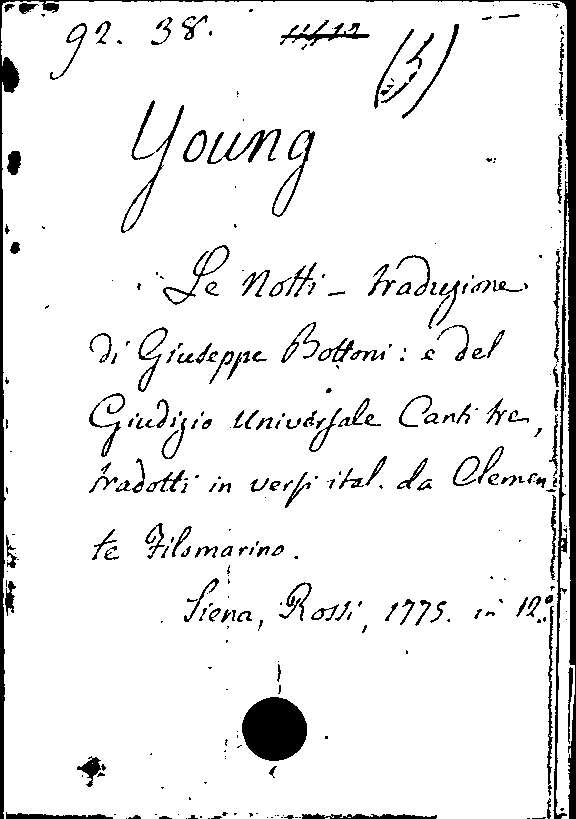 92. 38.
Young
Le Notti – traduzione
di Giuseppe Bottoni: e del
Giudizio Universale Canti tre,
tradotti in versi ital. da Clemen-
te Filomarino.
Siena, Rossi, 1775. in 12.º